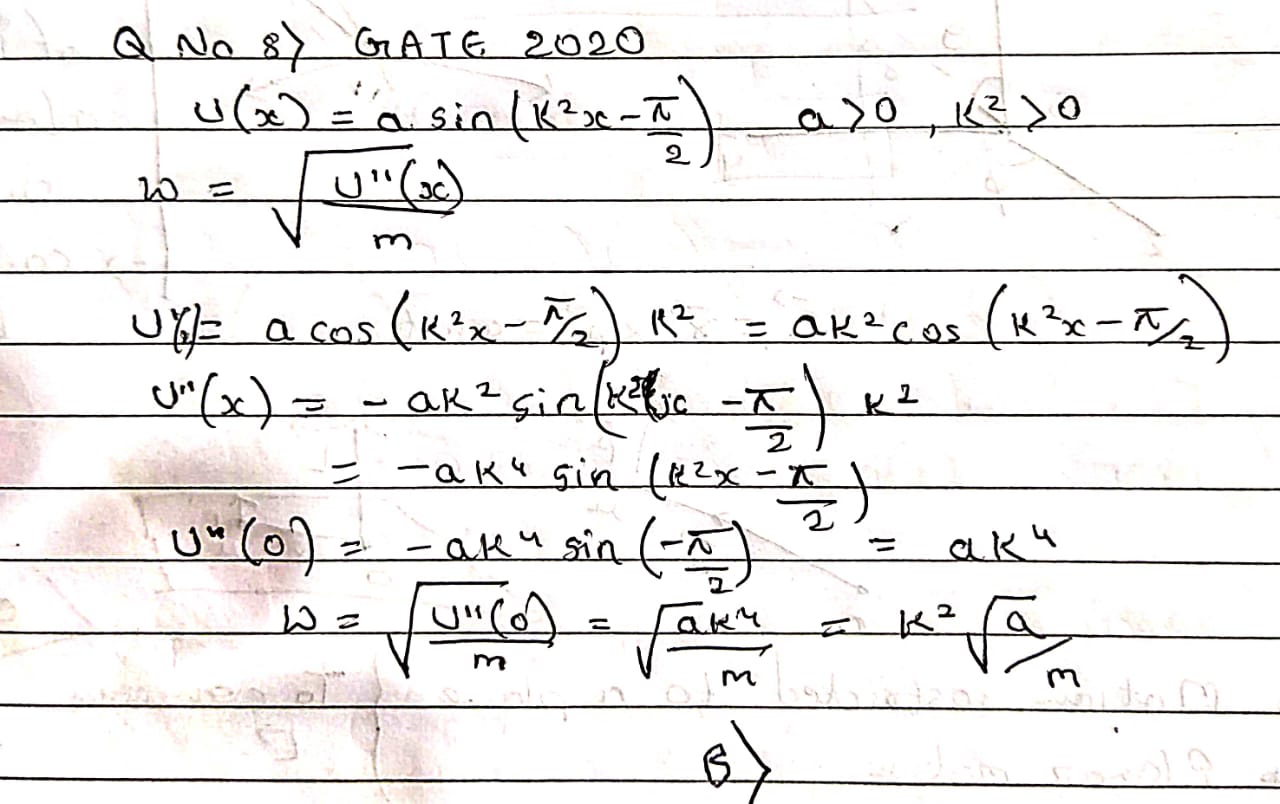 Q No 8) GATE 2020
U(x) = a sin(K²x - π/2) a>0, K²>0
w = √(U''(x)/m)
U'(x) = a cos(K²x - π/2) K² = aK² cos(K²x - π/2)
U''(x) = - aK² sin(K²x - π/2) K²
= -aK⁴ sin (K²x - π/2)
U''(0) = -aK⁴ sin(-π/2) = aK⁴
W = √(U''(0)/m) = √(aK⁴/m) = K² √(a/m)
B)